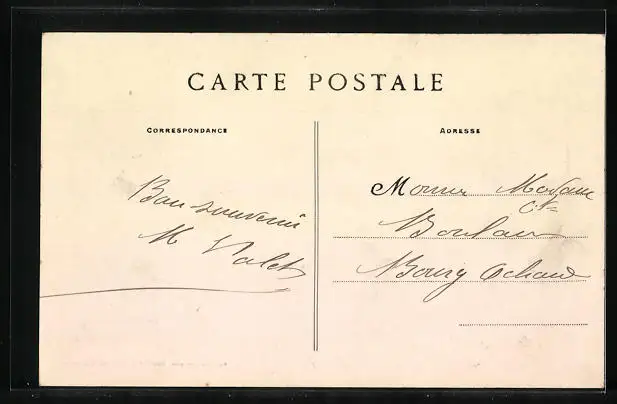 CARTE POSTALE
CORRESPONDANCE
ADRESSE
Bon souvenir
M Valet
Monsieur Madame
Boulan
Bourg Achard